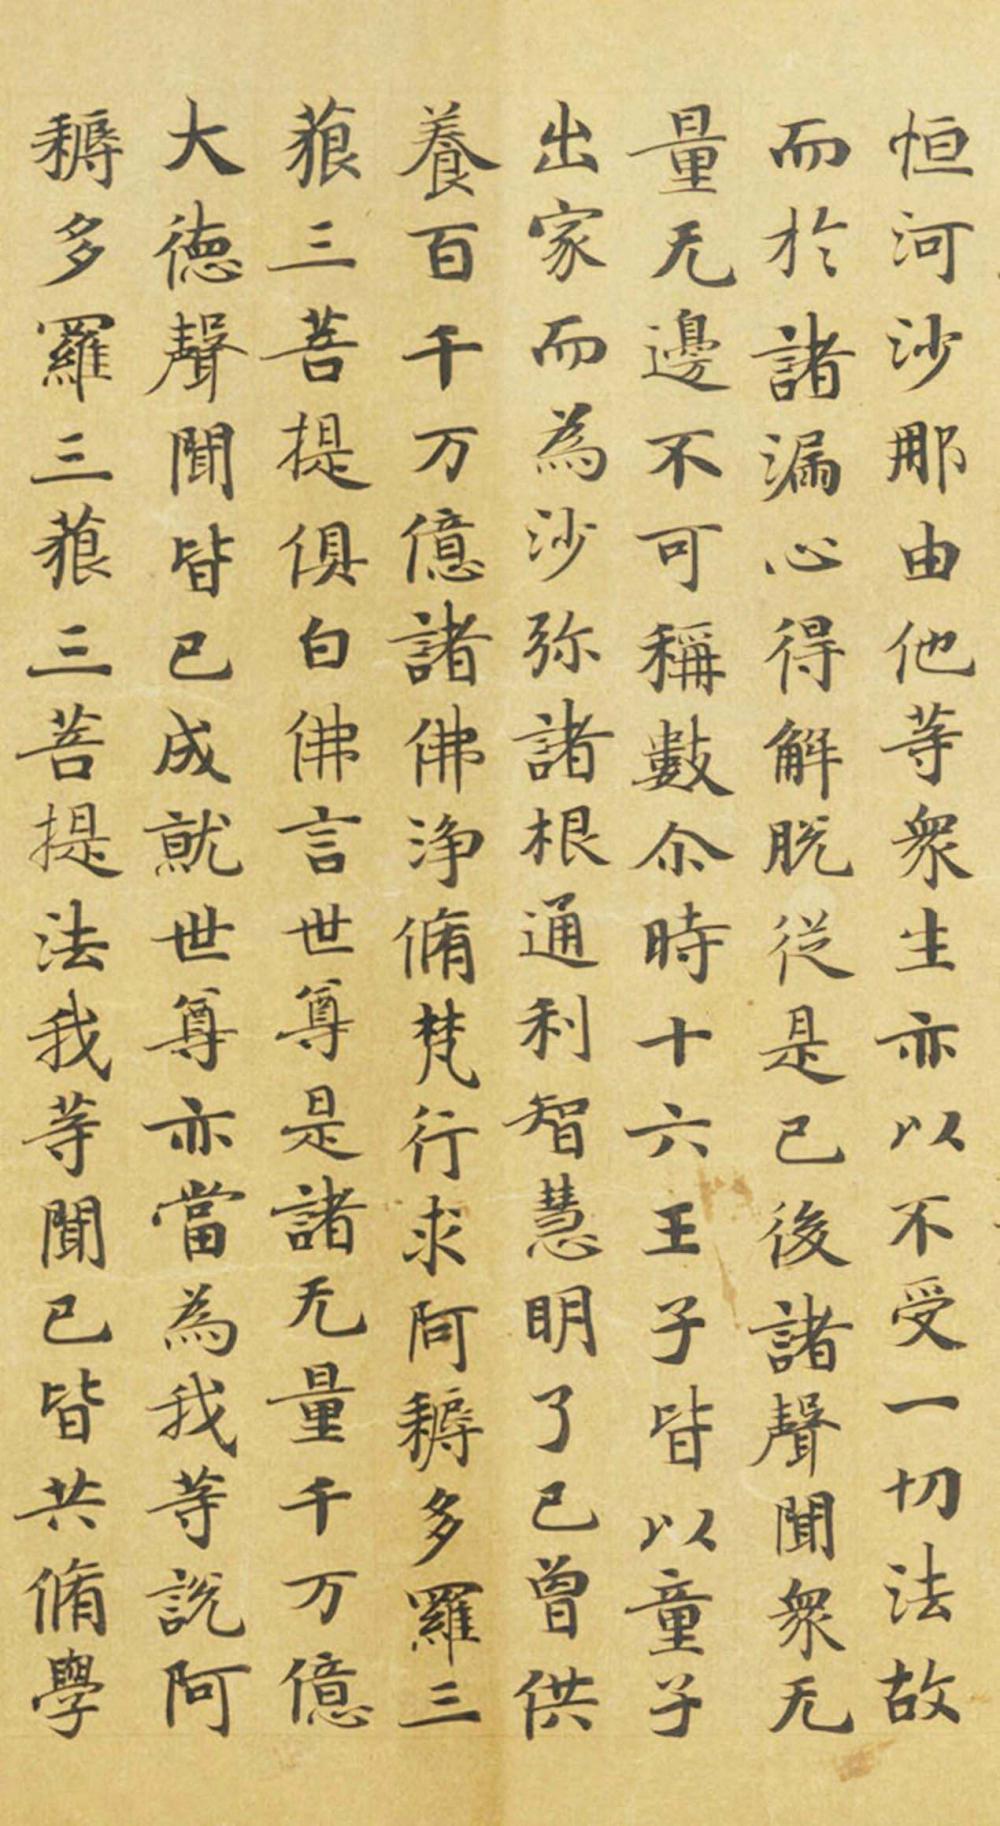 恒河沙那由他等衆生亦以不受一切法故
而於諸漏心得解脫從是已後諸聲聞衆无
量无邊不可稱數尒時十六王子皆以童子
出家而為沙弥諸根通利智慧明了已曾供
養百千万億諸佛淨脩梵行求阿耨多羅三
藐三菩提俱白佛言世尊是諸无量千万億
大德聲聞皆已成就世尊亦當為我等說阿
耨多羅三藐三菩提法我等聞已皆共脩學